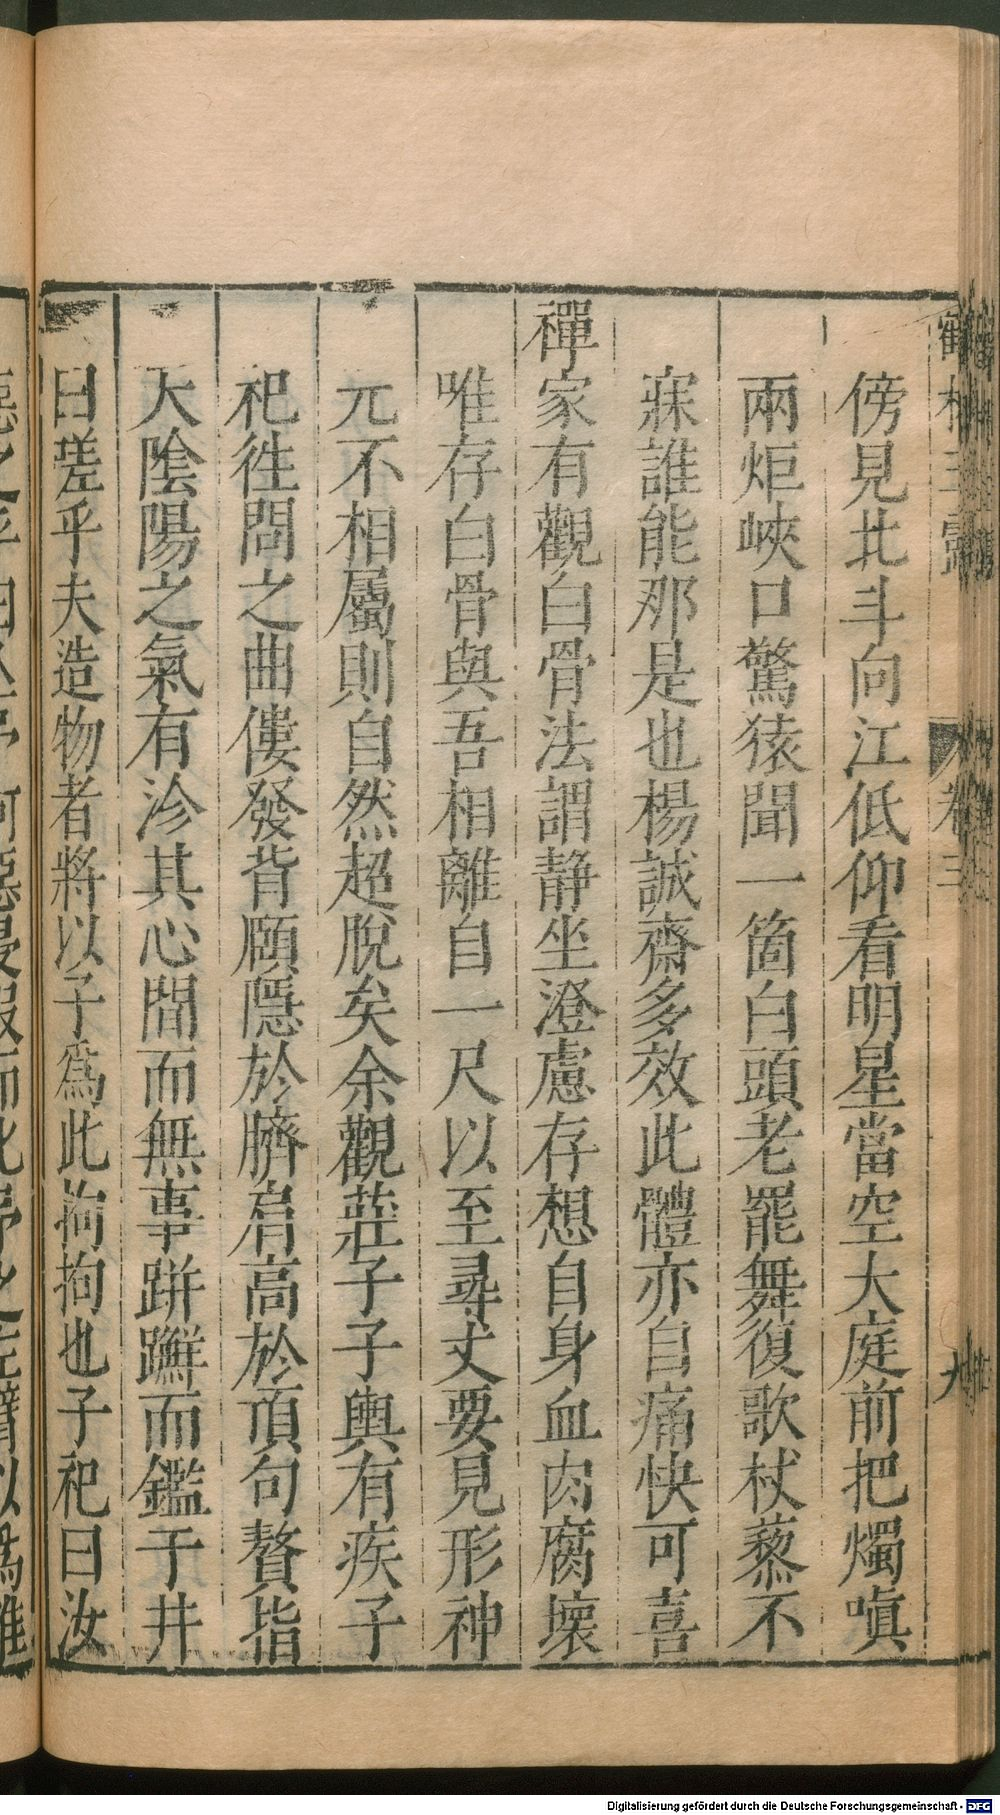 傍見北斗向江低仰看明星當空大庭前把燭嗔
兩炬峽口驚猿聞一箇白頭老罷舞復歌杖藜不
寐誰能那是也楊誠齋多效此體亦自痛快可喜
禪家有觀白骨法謂静坐澄慮存想自身血肉腐壞
唯存白骨與吾相離自一尺以至尋丈要見形神
元不相屬則自然超脫矣余觀莊子子輿有疾子
祀徃問之曲僂發背願隱於臍肩高於頂句贅指
大陰陽之氣有沴其心間而無事跰𨇤而鑑于井
曰嗟乎夫造物者將以子為此拘拘也子祀曰汝
卷三
九
Digitalisierung gefördert durch die Deutsche Forschungsgemeinschaft - DFG